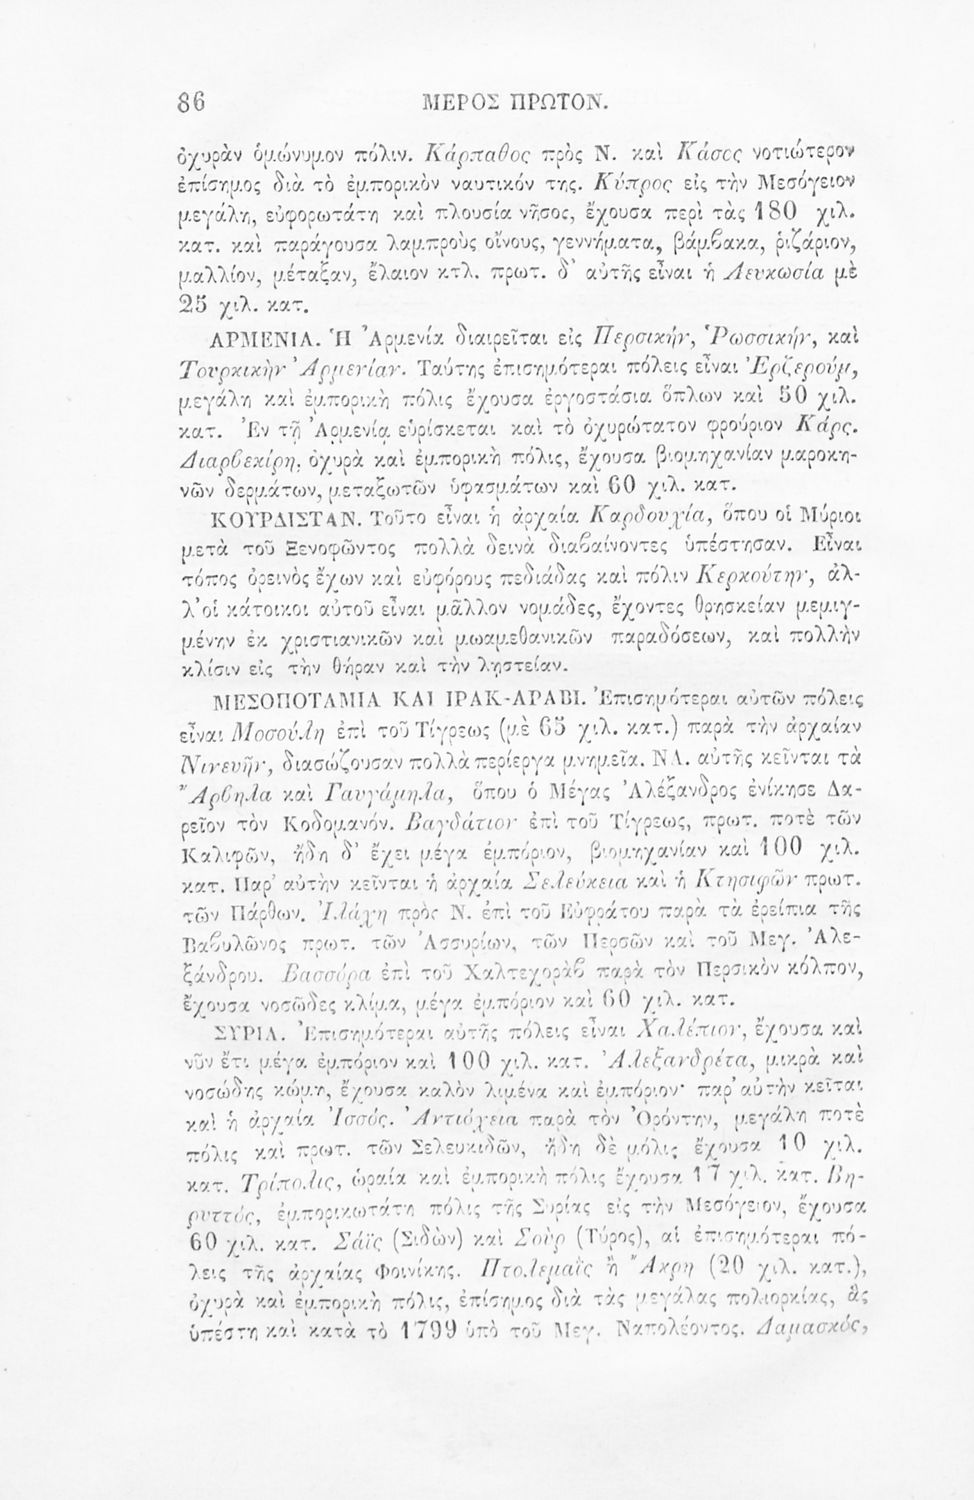 86 ΜΕΡΟΣ ΠΡΩΤΟΝ.
ὀχυρὰν ὁμώνυμον πόλιν. Κάρπαθος πρὸς Ν. καὶ Κάσος νοτιώτερον
ἐπίσημος διὰ τὸ ἐμπορικὸν ναυτικόν της. Κύπρος εἰς τὴν Μεσόγειον
μεγάλη, εὐφορωτάτη καὶ πλουσία νῆσος, ἔχουσα περὶ τὰς 180 χιλ.
κατ. καὶ παράγουσα λαμπροὺς οἴνους, γεννήματα, βάμβακα, ῥιζάριον,
μαλλίον, μέταξαν, ἔλαιον κτλ. πρωτ. δ' αὐτῆς εἶναι ἡ Λευκωσία μὲ
25 χιλ. κατ.
ΑΡΜΕΝΙΑ. Ἡ Ἀρμενία διαιρεῖται εἰς Περσικήν, Ῥωσσικήν, καὶ
Τουρκικὴν Ἀρμενίαν. Ταύτης ἐπισημότεραι πόλεις εἶναι Ἐρζερούμ,
μεγάλη καὶ ἐμπορικὴ πόλις ἔχουσα ἐργοστάσια ὅπλων καὶ 50 χιλ.
κατ. Ἐν τῇ Ἀρμενίᾳ εὑρίσκεται καὶ τὸ ὀχυρώτατον φρούριον Κάρς.
Διαρβεκίρη, ὀχυρὰ καὶ ἐμπορικὴ πόλις, ἔχουσα βιομηχανίαν μαροκη-
νῶν δερμάτων, μεταξωτῶν ὑφασμάτων καὶ 60 χιλ. κατ.
ΚΟΥΡΔΙΣΤΑΝ. Τοῦτο εἶναι ἡ ἀρχαία Καρδουχία, ὅπου οἱ Μύριοι
μετὰ τοῦ Ξενοφῶντος πολλὰ δεινὰ διαβαίνοντες ὑπέστησαν. Εἶναι
τόπος ὀρεινὸς ἔχων καὶ εὐφόρους πεδιάδας καὶ πόλιν Κερκούτην, ἀλ-
λ' οἱ κάτοικοι αὐτοῦ εἶναι μᾶλλον νομάδες, ἔχοντες θρησκείαν μεμιγ-
μένην ἐκ χριστιανικῶν καὶ μωαμεθανικῶν παραδόσεων, καὶ πολλὴν
κλίσιν εἰς τὴν θήραν καὶ τὴν λῃστείαν.
ΜΕΣΟΠΟΤΑΜΙΑ ΚΑΙ ΙΡΑΚ-ΑΡΑΒΙ. Ἐπισημότεραι αὐτῶν πόλεις
εἶναι Μοσούλη ἐπὶ τοῦ Τίγρεως (μὲ 65 χιλ. κατ.) παρὰ τὴν ἀρχαίαν
Νινευῆν, διασώζουσαν πολλὰ περίεργα μνημεῖα. ΝΑ. αὐτῆς κεῖνται τὰ
Ἄρβηλα καὶ Γαυγάμηλα, ὅπου ὁ Μέγας Ἀλέξανδρος ἐνίκησε Δα-
ρεῖον τὸν Κοδομανόν. Βαγδάτιον ἐπὶ τοῦ Τίγρεως, πρωτ. ποτὲ τῶν
Καλιφῶν, ἤδη δ' ἔχει μέγα ἐμπόριον, βιομηχανίαν καὶ 100 χιλ.
κατ. Παρ' αὐτὴν κεῖνται ἡ ἀρχαία Σελεύκεια καὶ ἡ Κτησιφῶν πρωτ.
τῶν Πάρθων. Ἰλάχη πρὸς Ν. ἐπὶ τοῦ Εὐφράτου παρὰ τὰ ἐρείπια τῆς
Βαβυλῶνος πρωτ. τῶν Ἀσσυρίων, τῶν Περσῶν καὶ τοῦ Μεγ. Ἀλε-
ξάνδρου. Βασσόρα ἐπὶ τοῦ Χαλτεχορὰβ παρὰ τὸν Περσικὸν κόλπον,
ἔχουσα νοσῶδες κλίμα, μέγα ἐμπόριον καὶ 60 χιλ. κατ.
ΣΥΡΙΑ. Ἐπισημότεραι αὐτῆς πόλεις εἶναι Χαλέπιον, ἔχουσα καὶ
νῦν ἔτι μέγα ἐμπόριον καὶ 100 χιλ. κατ. Ἀλεξανδρέτα, μικρὰ καὶ
νοσώδης κώμη, ἔχουσα καλὸν λιμένα καὶ ἐμπόριον· παρ' αὐτὴν κεῖται
καὶ ἡ ἀρχαία Ἰσσός. Ἀντιόχεια παρὰ τὸν Ὀρόντην, μεγάλη ποτὲ
πόλις καὶ πρωτ. τῶν Σελευκιδῶν, ἤδη δὲ μόλις ἔχουσα 10 χιλ.
κατ. Τρίπολις, ὡραία καὶ ἐμπορικὴ πόλις ἔχουσα 17 χιλ. κατ. Βη-
ρυττός, ἐμπορικωτάτη πόλις τῆς Συρίας εἰς τὴν Μεσόγειον, ἔχουσα
60 χιλ. κατ. Σάϊς (Σιδὼν) καὶ Σοὺρ (Τύρος), αἱ ἐπισημότεραι πό-
λεις τῆς ἀρχαίας Φοινίκης. Πτολεμαῒς ἢ Ἄκρη (20 χιλ. κατ.),
ὀχυρὰ καὶ ἐμπορικὴ πόλις, ἐπίσημος διὰ τὰς μεγάλας πολιορκίας, ἃς
ὑπέστη καὶ κατὰ τὸ 1799 ὑπὸ τοῦ Μεγ. Ναπολέοντος. Δαμασκός,